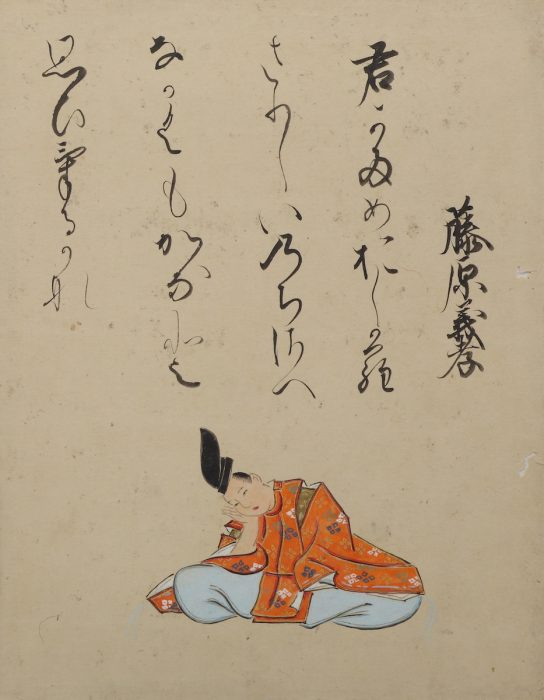 藤原義孝
君かためおしから
さりしいのちさへ
なかくもかなと
思ひけるかな